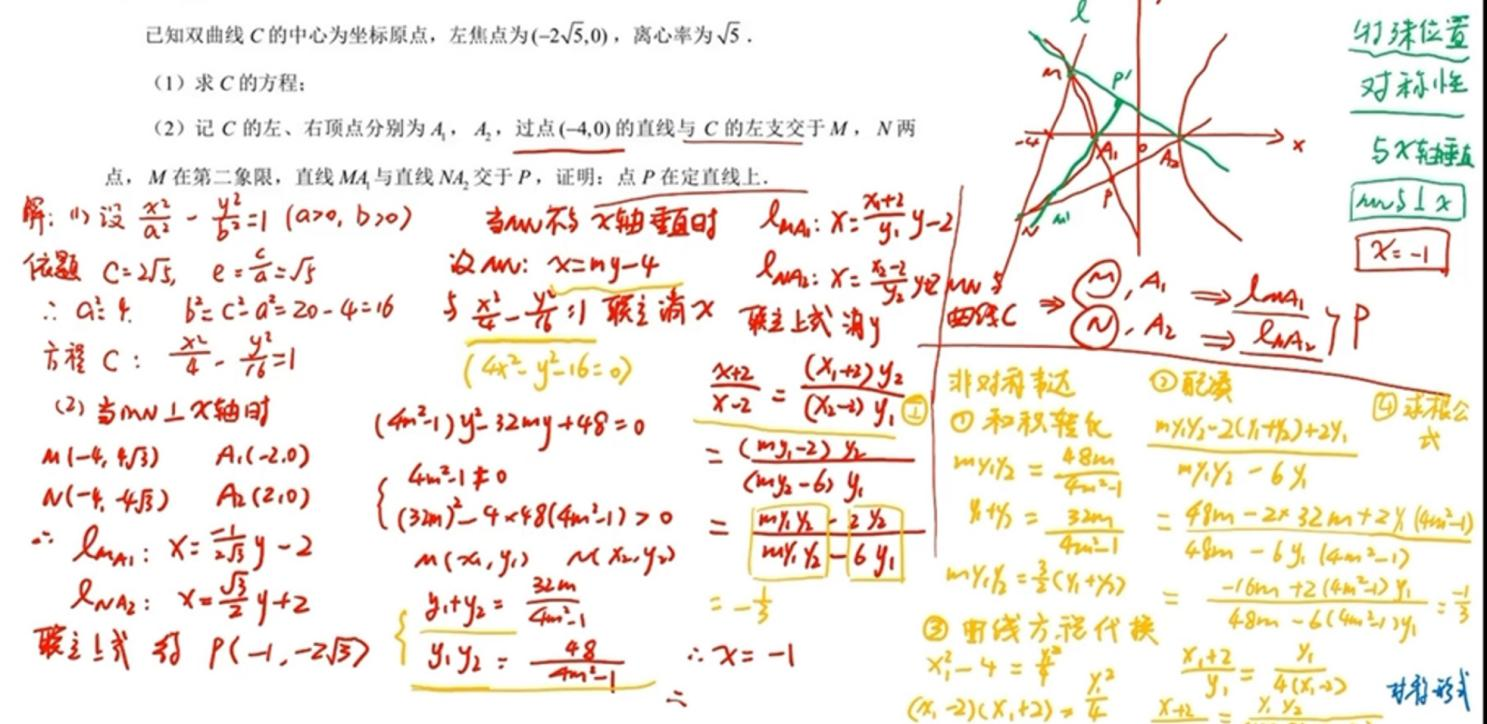 已知双曲线 C 的中心为坐标原点，左焦点为(−2√5,0)，离心率为√5．
（1）求 C 的方程；
（2）记 C 的左、右顶点分别为 A₁，A₂，过点(−4,0)的直线与 C 的左支交于 M，N 两
点，M 在第二象限，直线 MA₁ 与直线 NA₂ 交于 P，证明：点 P 在定直线上．
解：(1) 设 x²/a² - y²/b² = 1 (a>0, b>0)
依题 c=2√5, e=c/a=√5
∴ a²=4. b²=c²-a²=20-4=16
方程 C： x²/4 - y²/16 = 1
(2) 当MN⊥x轴时
M(-4, 4√3) A₁(-2,0)
N(-4, -4√3) A₂(2,0)
∴ l_MA₁: x = -1/(2√3) y - 2
l_NA₂: x = √3/2 y + 2
联立上式 得 P(-1, -2√3)
当MN不与x轴垂直时
设MN: x=my-4
与 x²/4 - y²/16 = 1 联立消x
(4x²-y²-16=0)
(4m²-1)y²-32my+48=0
4m²-1≠0
(32m)²-4×48(4m²-1)>0
M(x₁,y₁) N(x₂,y₂)
y₁+y₂ = 32m/(4m²-1)
y₁y₂ = 48/(4m²-1)
l_MA₁: x = (x₁+2)/y₁ y - 2
l_NA₂: x = (x₂-2)/y₂ y+2
联立上式消y
(x+2)/(x-2) = (x₁+2)y₂/((x₂-2)y₁) ①
= (my₁-2)y₂/((my₂-6)y₁)
= (my₁y₂-2y₂)/(my₁y₂-6y₁)
= -1/3
∴ x=-1
l
M
P'
-4
A₁
O
A₂
x
P
N
M'
特殊位置
对称性
与x轴垂直
MN⊥x
x=-1
MN与
曲线C ⇒ M, A₁ ⇒ l_MA₁
N, A₂ ⇒ l_NA₂ } P
非对称表达
① 和积转化
my₁y₂ = 48m/(4m²-1)
y₁+y₂ = 32m/(4m²-1)
my₁y₂ = 3/2(y₁+y₂)
② 配凑
(my₁y₂-2(y₁+y₂)+2y₁)/(my₁y₂-6y₁)
= (48m-2×32m+2y₁(4m²-1))/(48m-6y₁(4m²-1))
= (-16m+2(4m²-1)y₁)/(48m-6(4m²-1)y₁) = -1/3
④ 求根公
式
③ 曲线方程代换
x₁²-4 = y₁²/4
(x₁-2)(x₁+2) = y₁²/4
(x₁+2)/y₁ = y₁/(4(x₁-2))
对称形式